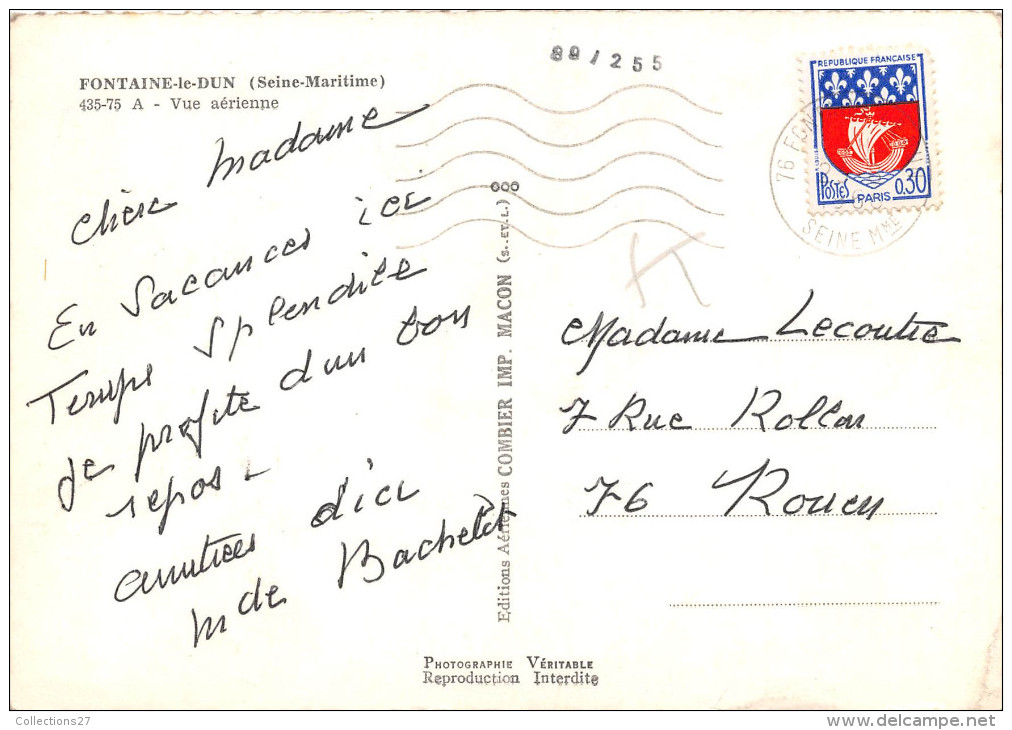 FONTAINE-le-DUN (Seine-Maritime)
435-75 A - Vue aérienne
88/255
REPUBLIQUE FRANÇAISE
POSTES
0.30
PARIS
76 FONT
SEINE MME
chère madame
En vacances ici
Temps Splendide
je profite d'un bon
repos -
amitiées d'ici
mde Bachelet
Editions Aériennes COMBIER IMP. MACON (S.-ET-L.)
Madame Lecoutre
7 Rue Rollon
76 Rouen
PHOTOGRAPHIE VÉRITABLE
Reproduction Interdite
Collections27
delcampe.net